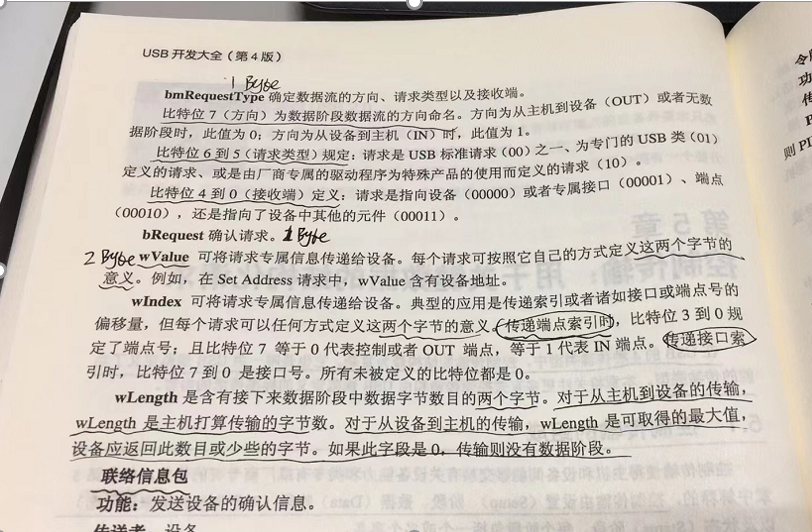 USB 开发大全（第 4 版）
1 Byte
bmRequestType 确定数据流的方向、请求类型以及接收端。
比特位 7（方向）为数据阶段数据流的方向命名。方向为从主机到设备（OUT）或者无数
据阶段时，此值为 0；方向为从设备到主机（IN）时，此值为 1。
比特位 6 到 5（请求类型）规定：请求是 USB 标准请求（00）之一、为专门的 USB 类（01）
定义的请求、或是由厂商专属的驱动程序为特殊产品的使用而定义的请求（10）。
比特位 4 到 0（接收端）定义：请求是指向设备（00000）或者专属接口（00001）、端点
（00010），还是指向了设备中其他的元件（00011）。
bRequest 确认请求。1 Byte
2 Byte wValue 可将请求专属信息传递给设备。每个请求可按照它自己的方式定义这两个字节的
意义。例如，在 Set Address 请求中，wValue 含有设备地址。
wIndex 可将请求专属信息传递给设备。典型的应用是传递索引或者诸如接口或端点号的
偏移量，但每个请求可以任何方式定义这两个字节的意义。传递端点索引时，比特位 3 到 0 规
定了端点号；且比特位 7 等于 0 代表控制或者 OUT 端点，等于 1 代表 IN 端点。传递接口索
引时，比特位 7 到 0 是接口号。所有未被定义的比特位都是 0。
wLength 是含有接下来数据阶段中数据字节数目的两个字节。对于从主机到设备的传输，
wLength 是主机打算传输的字节数。对于从设备到主机的传输，wLength 是可取得的最大值，
设备应返回此数目或少些的字节。如果此字段是 0，传输则没有数据阶段。
联络信息包
功能：发送设备的确认信息。
传送者：设备
令
功
传
则 PI